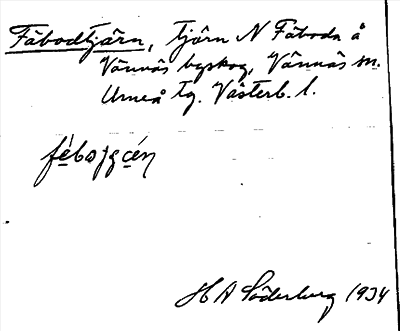 Fäbodtjärn, tjärn N Fäboda å
Vännäs byskog, Vännäs m.
Umeå tg. Västerb. l.
H A Söderburg 1934